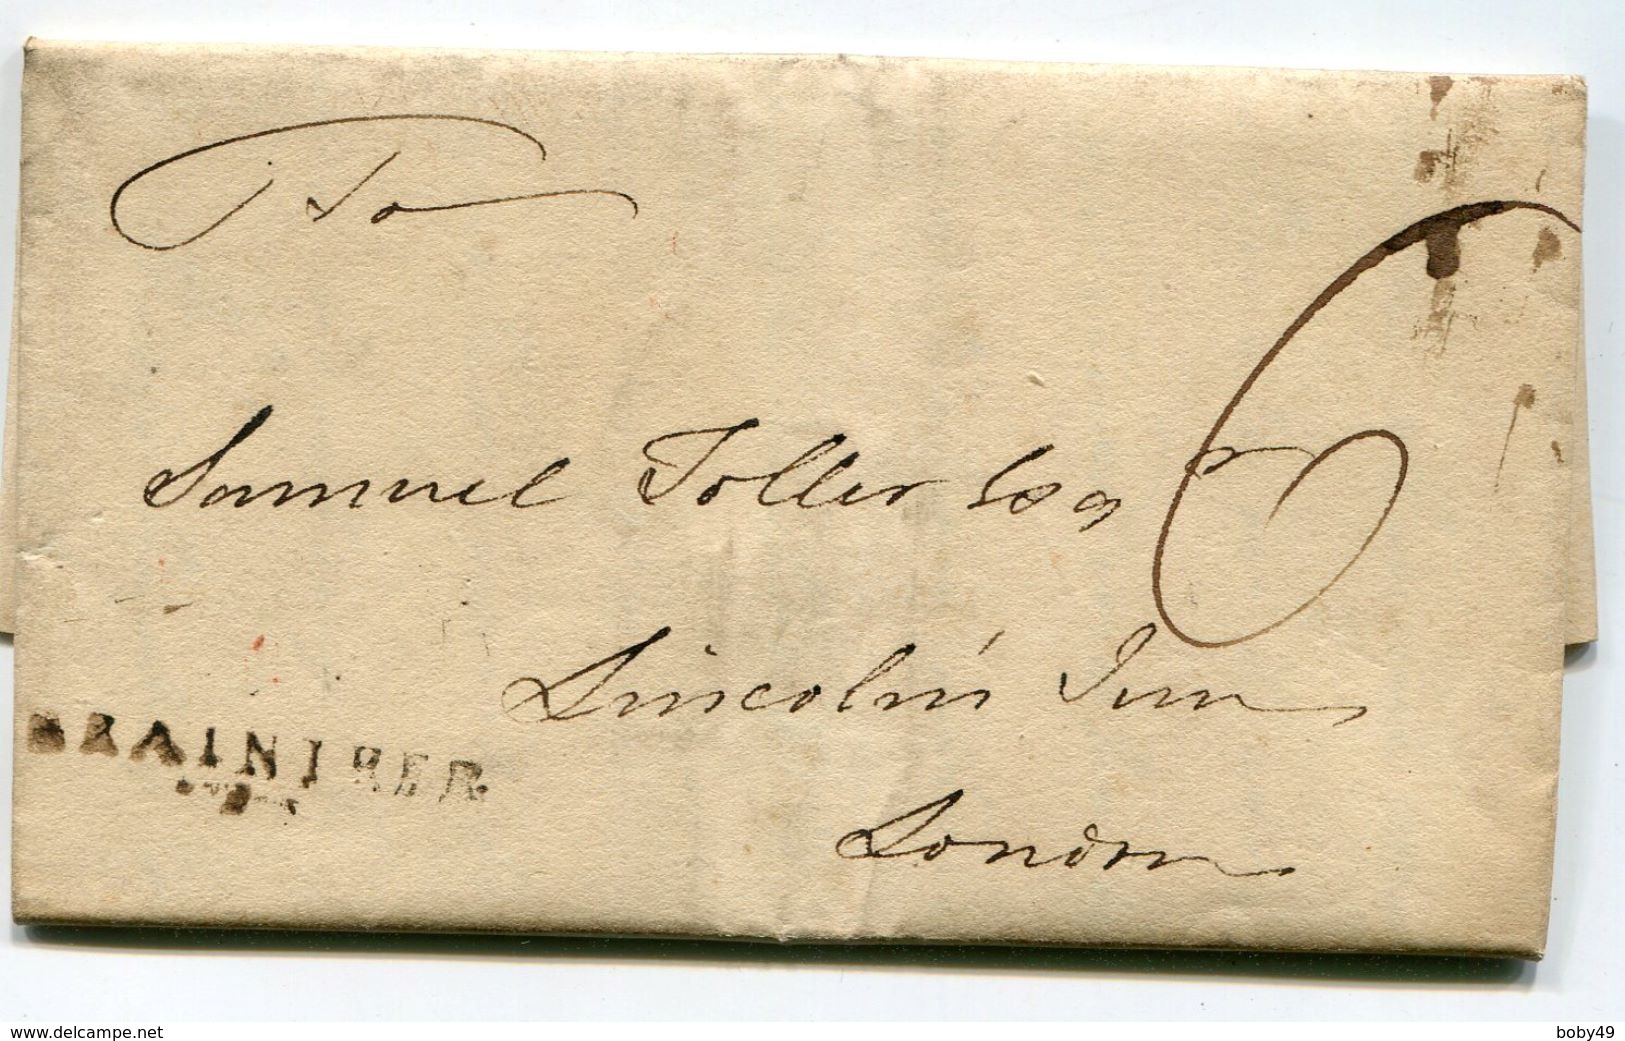 To
Samuel Toller Esqr
6
Lincoln's Inn
BRAINTREE
London
www.delcampe.net
boby49